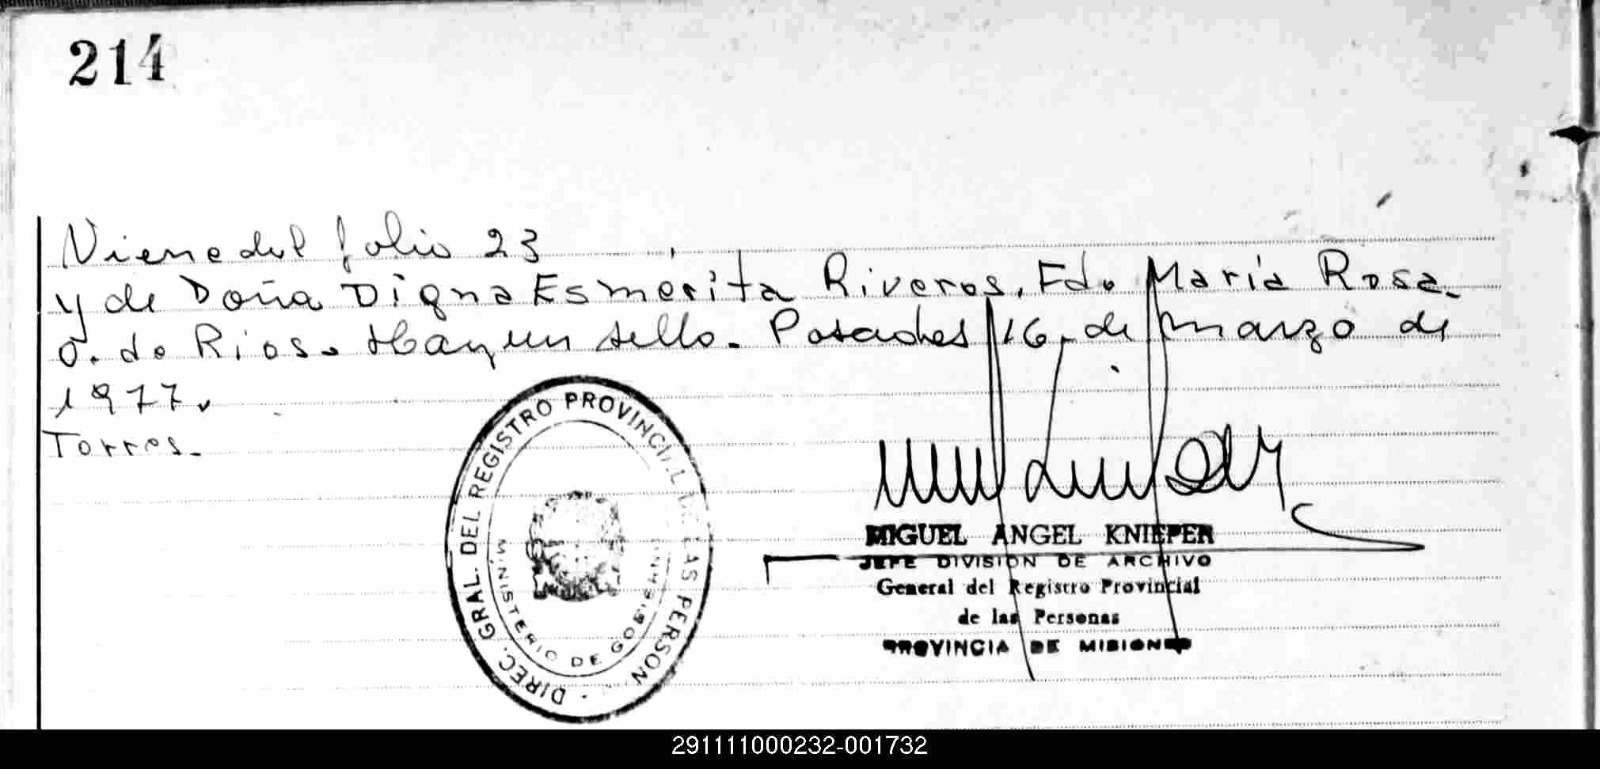 214
Viene del folio 23
y de Doña Digna Esmérita Riveros. Fdo María Rosa
O. de Rios. Hay un sello. Posadas 16, de marzo de
1977.
Torres.
DIREC. GRAL. DEL REGISTRO PROVINCIAL DE LAS PERSON.
MINISTERIO DE GOBIERNO
MIGUEL ANGEL KNIEPER
JEFE DIVISION DE ARCHIVO
General del Registro Provincial
de las Personas
PROVINCIA DE MISIONES
291111000232-001732